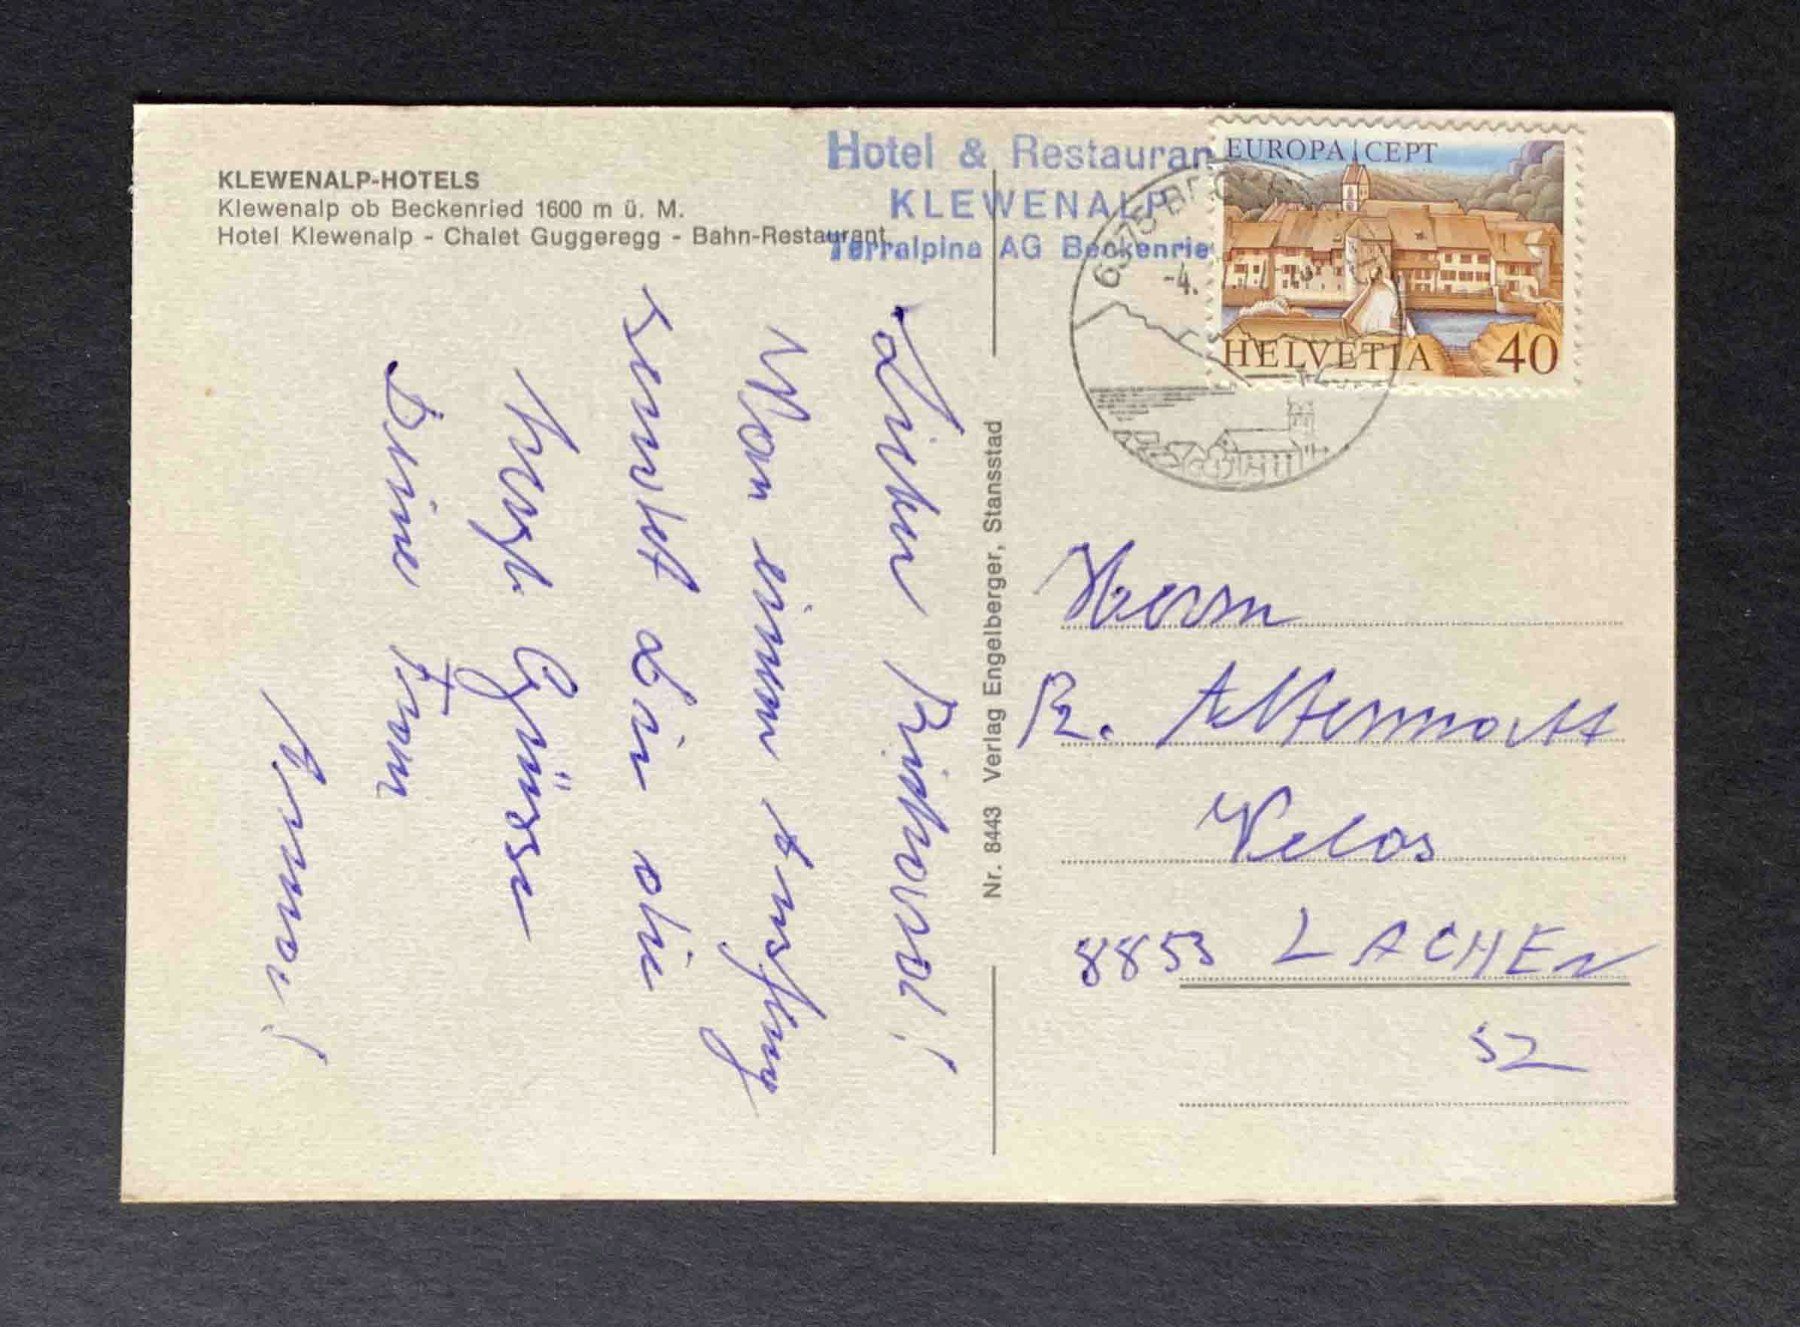 KLEWENALP-HOTELS
Klewenalp ob Beckenried 1600 m ü. M.
Hotel Klewenalp - Chalet Guggeregg - Bahn-Restaurant
Hotel & Restauran
KLEWENALP
Terralpina AG Beckenrie
6375 BEC
-4.
EUROPA CEPT
HELVETIA 40
Lieber Richard!
Von einem Ausflug
sendet Dir die
herzl. Grüsse
Deine Frau
Emmi!
Nr. 8443 Verlag Engelberger, Stansstad
Herrn
R. Altermatt
Velos
8853 LACHEN
SZ